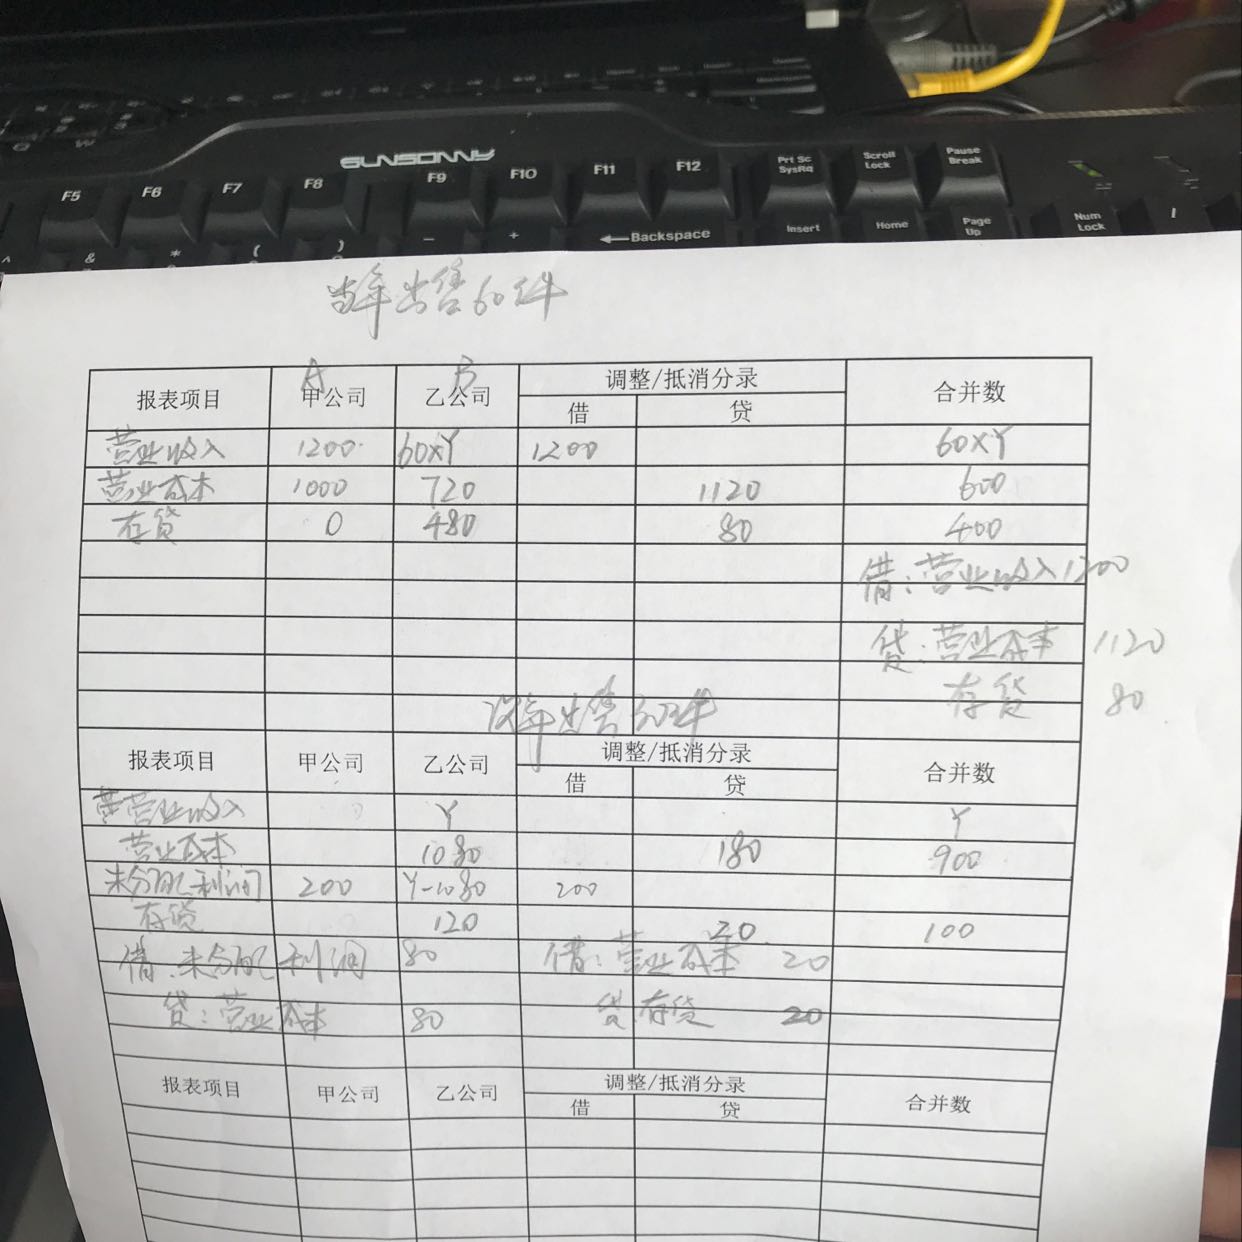 SUNSONNY
F5 F6 F7 F8 F9 F10 F11 F12 Prt Sc SysRq Scroll Lock Pause Break
& * ( ) - + ←Backspace Insert Home Page Up Num Lock /
当年出售60件
A B
报表项目 甲公司 乙公司 调整/抵消分录 合并数
借 贷
营业收入 1200 60×Y 1200 60×Y
营业成本 1000 720 1120 600
存货 0 480 80 400
借:营业收入1200
贷:营业成本 1120
存货 80
次年出售30件
报表项目 甲公司 乙公司 调整/抵消分录 合并数
借 贷
营业收入 Y Y
营业成本 1080 180 900
未分配利润 200 Y-1080 200
存货 120 20 100
借:未分配利润 80 借:营业成本 20
贷:营业成本 80 贷:存货 20
报表项目 甲公司 乙公司 调整/抵消分录 合并数
借 贷